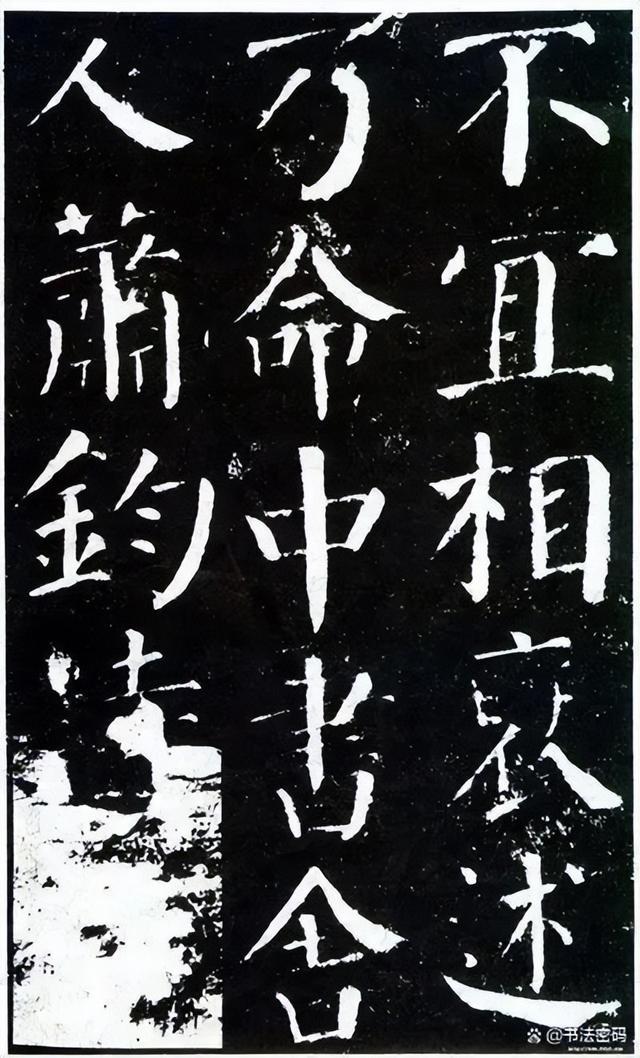 不宜相褒述
乃命中書舍
人蕭鈞
@书法密码